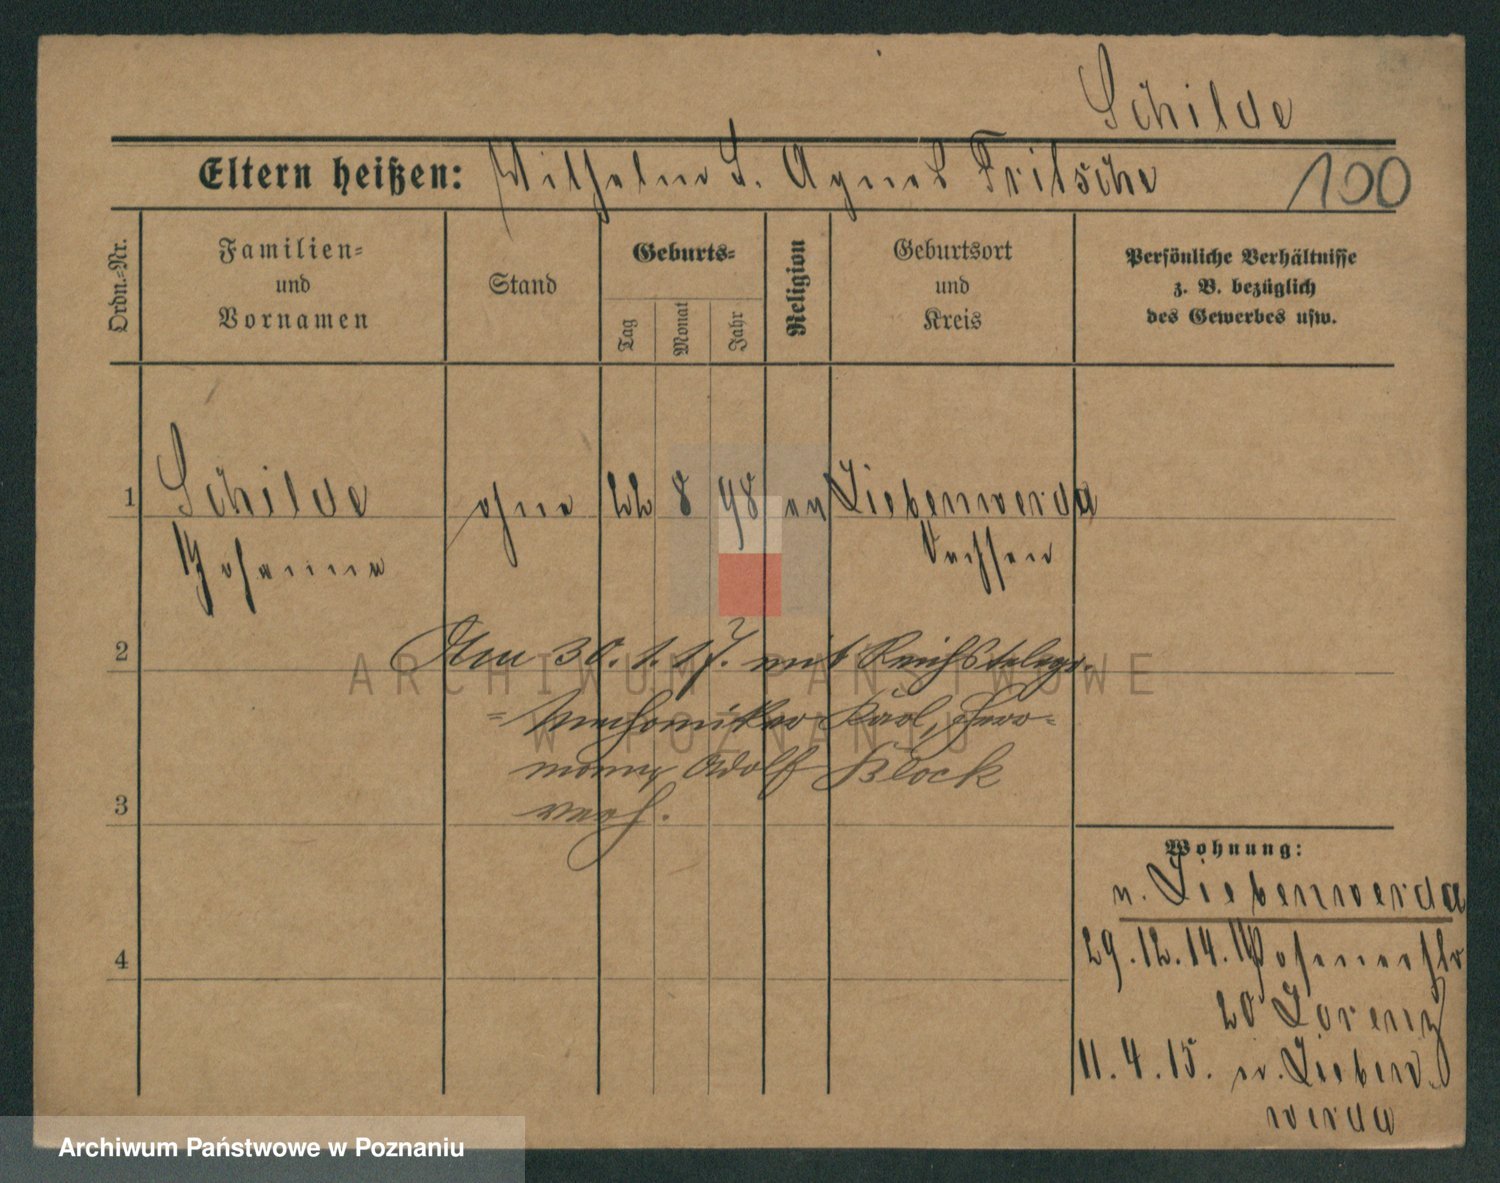 Schilde
Eltern heißen: Wilhelm S. Agnes Fritsche 100
Ordn.-Nr.
Familien-
und
Vornamen
Stand
Geburts-
Tag
Monat
Jahr
Religion
Geburtsort
und
Kreis
Persönliche Verhältnisse
z. B. bezüglich
des Gewerbes usw.
1 Schilde ohne 22 8 98 ev Liebenwerda
Johanna Sachsen
2 Am 30. 1. 17. mit Reichstelegr.
ARCHIWUM PAŃSTWOWE
=mechaniker Karl, Herr=
W POZNANIU
mann Adolf Block
3 verh.
Wohnung:
v. Liebenwerda
4 29.12.14. Posenerstr
20 Lorenz
11.4.15. n. Lieben
werda
Archiwum Państwowe w Poznaniu